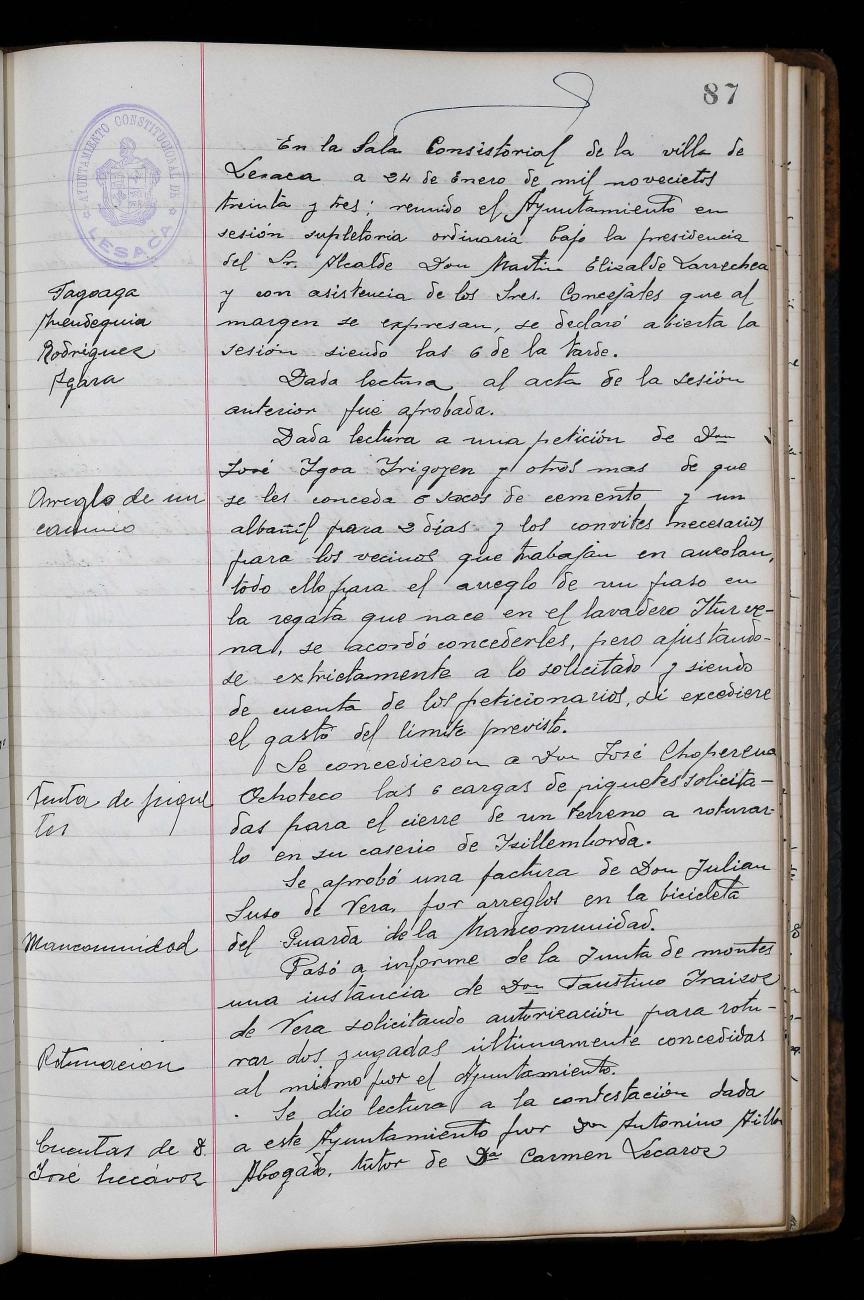 87
AYUNTAMIENTO CONSTITUCIONAL DE
LESACA
En la Sala Consistorial de la villa de
Lesaca a 24 de Enero de mil novecietos
treinta y tres; reunido el Ayuntamiento en
sesión supletoria ordinaria bajo la presidencia
del Sr. Alcalde Don Martin Elizalde Larrechea
Tagoaga
Mendeguia
Rodríguez
Igara
y con asistencia de los Sres. Concejales que al
margen se expresan, se declaró abierta la
sesión siendo las 6 de la tarde.
Dada lectura al acta de la sesión
anterior fue aprobada.
Dada lectura a una petición de Don
José Igoa Irigoyen y otros mas de que
Arreglo de un
camino
se les conceda 6 sacos de cemento y un
albañil para 2 dias y los convites necesarios
para los vecinos que trabajan en auzolan,
todo ello para el arreglo de un paso en
la regata que nace en el lavadero Iturve-
na, se acordó concederles, pero ajustando-
se extrictamente a lo solicitado y siendo
de cuenta de los peticionarios, si excediere
el gasto del limite previsto.
Se concedieron a Don José Choperena
Venta de pique
tes
Ochoteco las 6 cargas de piquetes solicita-
das para el cierre de un terreno a roturar-
lo en su caserio de Isillemborda.
Se aprobó una factura de Don Julian
Suso de Vera, por arreglos en la bicicleta
Mancomunidad
del Guarda de la Mancomunidad.
Pasó a informe de la Junta de montes
una instancia de Don Faustino Iraizoz
de Vera solicitando autorización para rotu-
Roturacion
rar dos yugadas ultimamente concedidas
al mismo por el Ayuntamiento.
Se dio lectura a la contestación dada
Cuentas de D.
José Lecároz
a este Ayuntamiento por Don Antonino
Abogado, tutor de Da Carmen Lecaroz